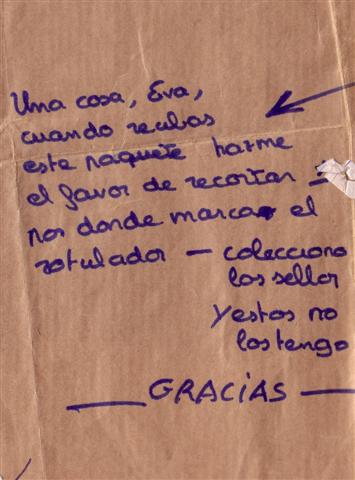 Una cosa, Eva,
cuando recibas
este paquete hazme
el favor de recortar
por donde marca el
rotulador — colecciono
los sellos
y estos no
los tengo
GRACIAS